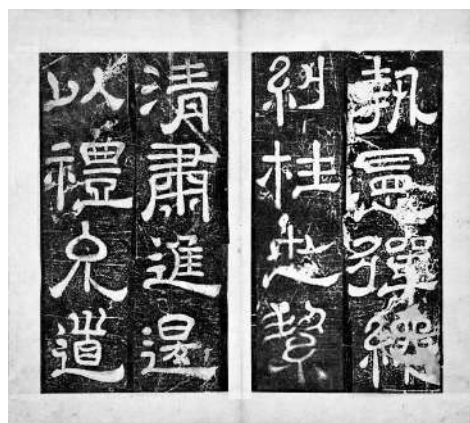 執憲彈繩
糾枉忠絜
清肅進退
以禮允道